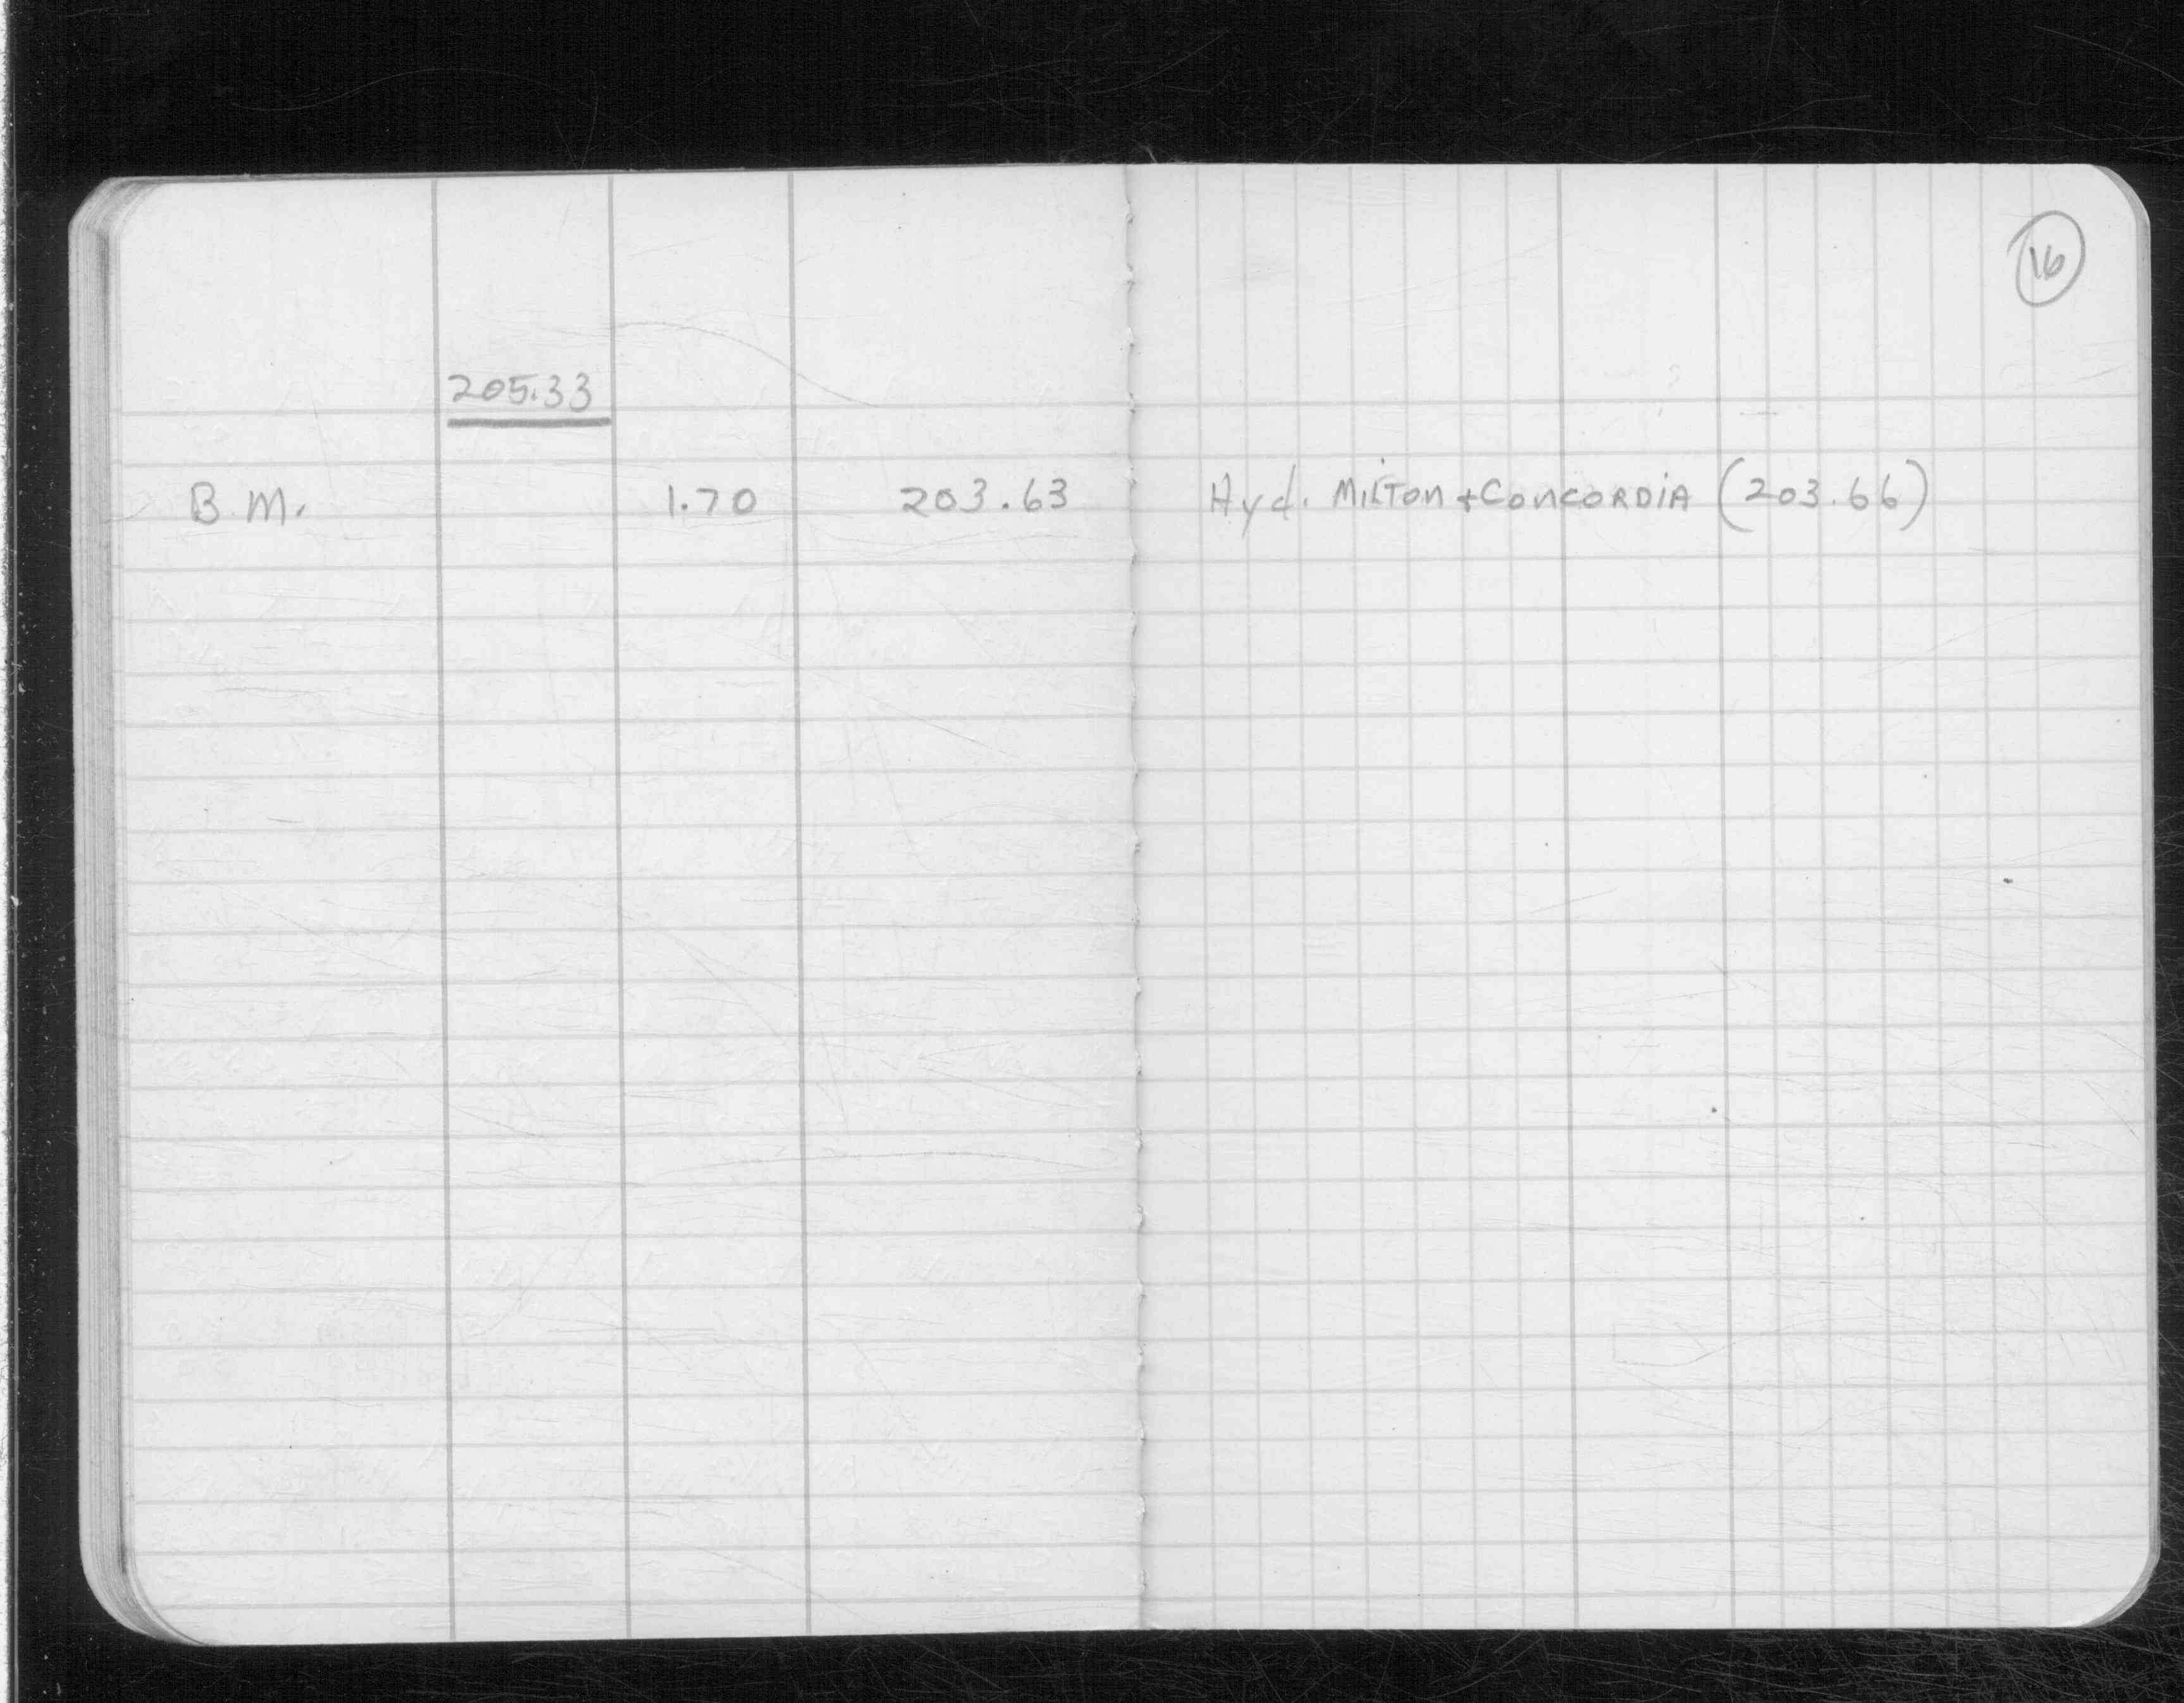 16
205.33
B.M. 1.70 203.63 Hyd. MILTON + CONCORDIA (203.66)